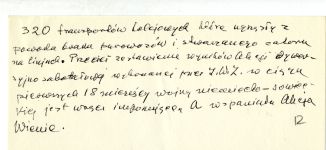 320 transportów kolejowych które wynosły z
powodu braku parowozów i stwarzanego zatoru
na liniach. Przecież zestawienie wyników akcji dywer-
syjno sabotażowej wykonanej przez Z.W.Z. w ciągu
pierwszych 18 miesięcy wojny niemiecko-sowiec-
kiej jest wręcz imponująca. A wspaniała Akcja
Wieniec.
12